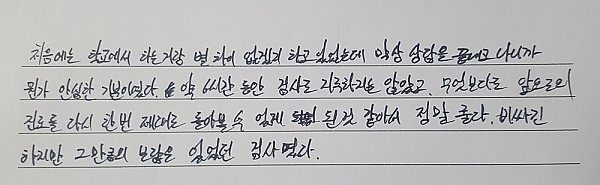 처음에는 학교에서 하는거랑 별 차이 없겠지 하고 있었는데 막상 상담을 끝내고 나니까
뭔가 안심한 기분이었다. 약 6시간 동안 검사로 지루하지는 않았고, 무엇보다도 앞으로의
진로를 다시 한번 제대로 돌아볼 수 있게 된것 같아서 정말 좋다. 비싸긴
하지만 그만큼의 보람은 있었던 검사였다.